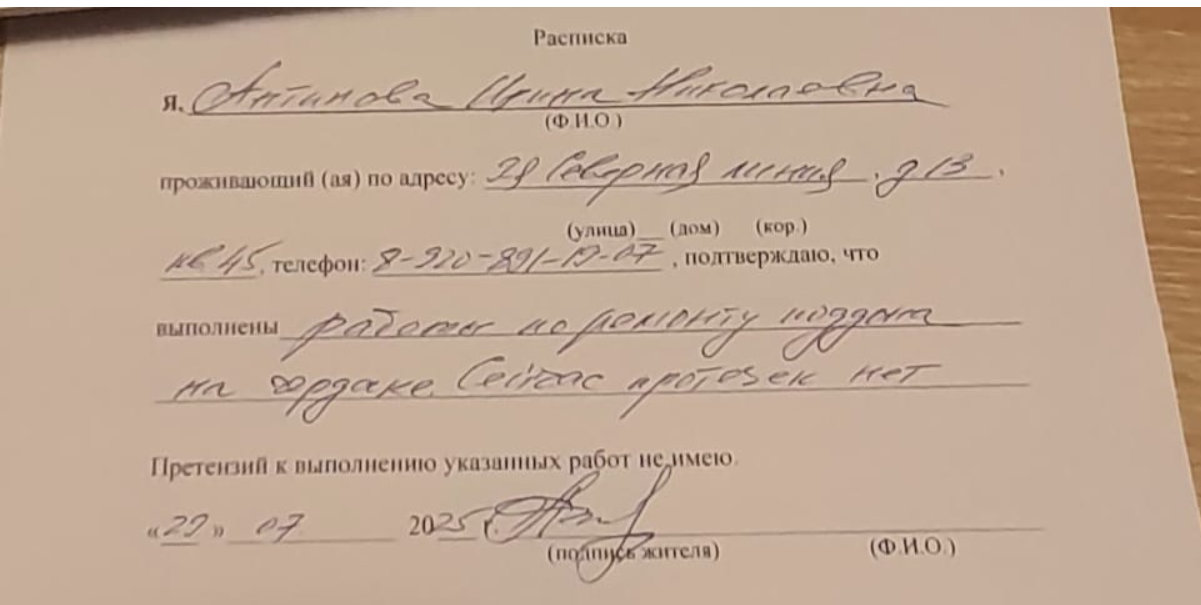 Расписка
Я, Антипова Ирина Николаевна
(Ф.И.О.)
проживающий (ая) по адресу: 2я Северная линия, д 13,
(улица) (дом) (кор.)
кв 45, телефон: 8-920-891-19-07, подтверждаю, что
выполнены работы по ремонту поддона
на чердаке. Сейчас протечек нет
Претензий к выполнению указанных работ не имею.
«29» 07 2025 г.
(подпись жителя) (Ф.И.О.)